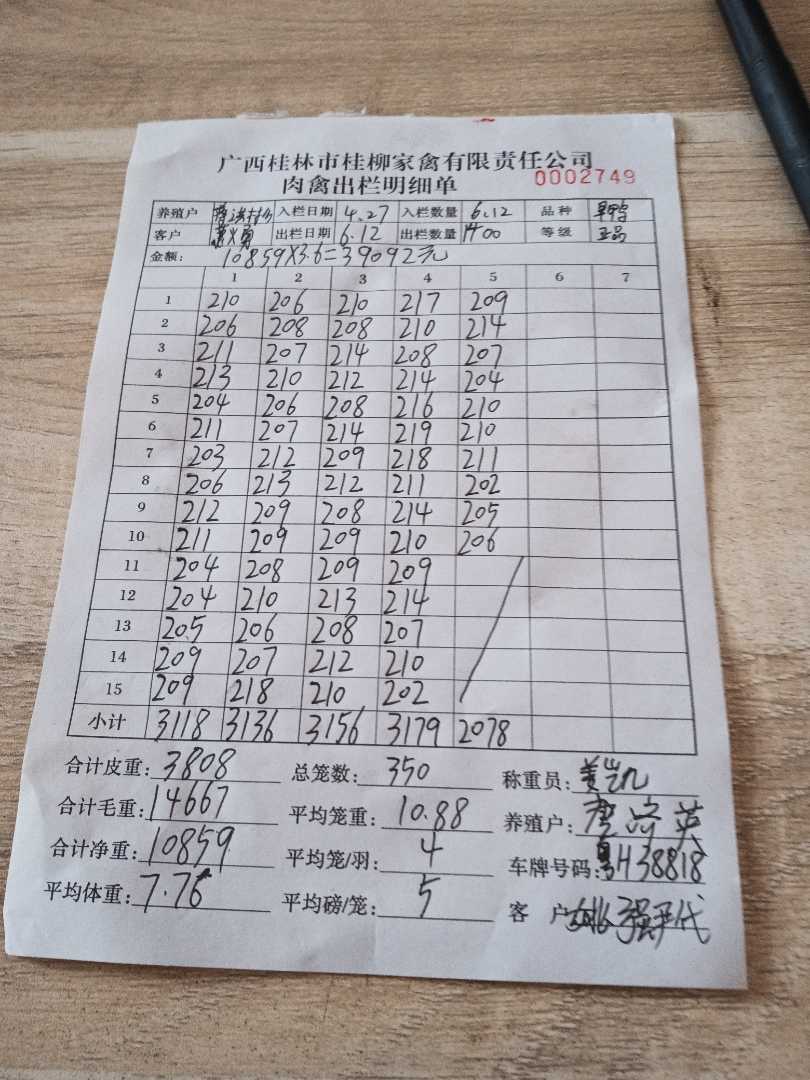 广西桂林市桂柳家禽有限责任公司
肉禽出栏明细单 0002749
养殖户 入栏日期 4.27 入栏数量 6.12 品种
客户 出栏日期 6.12 出栏数量 1400 等级 正品
金额: 10859×3.6=39092元
1 2 3 4 5 6 7
1 210 206 210 217 209
2 206 208 208 210 214
3 211 207 214 208 207
4 213 210 212 214 204
5 204 206 208 216 210
6 211 207 214 219 210
7 203 212 209 218 211
8 206 213 212 211 202
9 212 209 208 214 205
10 211 209 209 210 206
11 204 208 209 209
12 204 210 213 214
13 205 206 208 207
14 209 207 212 210
15 209 218 210 202
小计 3118 3136 3156 3179 2078
合计皮重: 3808 总笼数: 350 称重员: 姜凯
合计毛重: 14667 平均笼重: 10.88 养殖户:
合计净重: 10859 平均笼/羽: 4 车牌号码: 粤H38818
平均体重: 7.76 平均磅/笼: 5 客 户 强平代